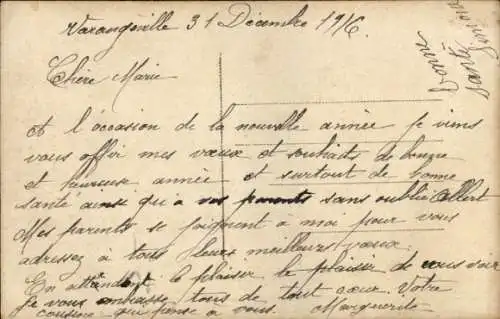 Varangéville 31 Décembre 1916.
Chère Marie
A l'occasion de la nouvelle année je viens
vous offrir mes vœux et souhaits de bonne
et heureuse année et surtout de bonne
santé ainsi qu'a vos parents sans oublier Albert
Mes parents se joignent à moi pour vous
adressez à tous leurs meilleurs vœux.
En attendant le plaisir le plaisir de vous voir
Je vous embrasse tous de tout cœur. Votre
cousine qui pense a vous. Marguerite